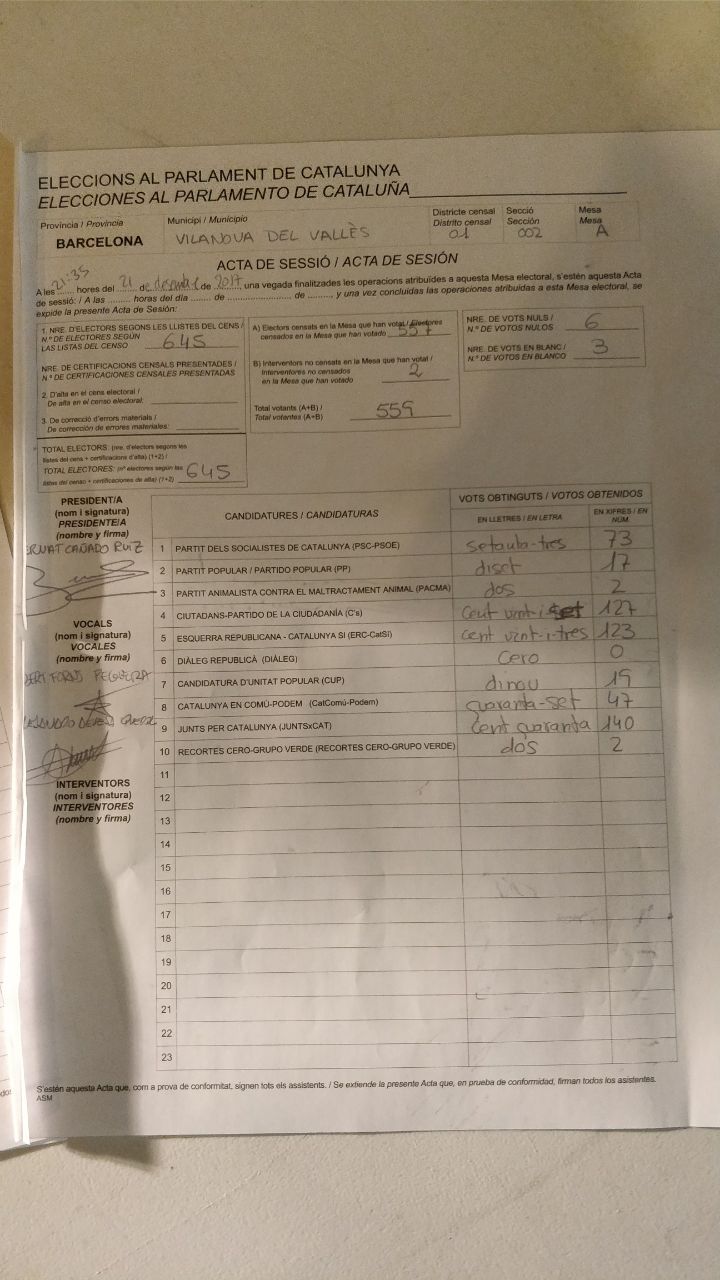 ELECCIONS AL PARLAMENT DE CATALUNYA
ELECCIONES AL PARLAMENTO DE CATALUÑA
Província / Provincia
BARCELONA
Municipi / Municipio
VILANOVA DEL VALLÈS
Districte censal
Distrito censal
01
Secció
Sección
002
Mesa
Mesa
A
ACTA DE SESSIÓ / ACTA DE SESIÓN
A les 21:35 hores del 21 de desembre de 2017 una vegada finalitzades les operacions atribuïdes a aquesta Mesa electoral, s'estén aquesta Acta
de sessió: / A las ......... horas del día ....... de ......................... de ........., y una vez concluidas las operaciones atribuidas a esta Mesa electoral, se
expide la presente Acta de Sesión:
1. NRE. D'ELECTORS SEGONS LES LLISTES DEL CENS /
N.º DE ELECTORES SEGÚN
LAS LISTAS DEL CENSO
645
NRE. DE CERTIFICACIONS CENSALS PRESENTADES /
N.º DE CERTIFICACIONES CENSALES PRESENTADAS
2. D'alta en el cens electoral /
De alta en el censo electoral:
3. De correcció d'errors materials /
De corrección de errores materiales:
TOTAL ELECTORS: (nre. d'electors segons les
llistes del cens + certificacions d'alta) (1+2) /
TOTAL ELECTORES: (nº electores según las
listas del censo + certificaciones de alta) (1+2)
645
A) Electors censats en la Mesa que han votat / Electores
censados en la Mesa que han votado
557
B) Interventors no censats en la Mesa que han votat /
Interventores no censados
en la Mesa que han votado
2
Total votants (A+B) /
Total votantes (A+B)
559
NRE. DE VOTS NULS /
N.º DE VOTOS NULOS
6
NRE. DE VOTS EN BLANC /
N.º DE VOTOS EN BLANCO
3
PRESIDENT/A
(nom i signatura)
PRESIDENTE/A
(nombre y firma)
CAÑADO RUIZ
VOCALS
(nom i signatura)
VOCALES
(nombre y firma)
INTERVENTORS
(nom i signatura)
INTERVENTORES
(nombre y firma)
CANDIDATURES / CANDIDATURAS
VOTS OBTINGUTS / VOTOS OBTENIDOS
EN LLETRES / EN LETRA
EN XIFRES / EN NÚM.
1 PARTIT DELS SOCIALISTES DE CATALUNYA (PSC-PSOE) setanta-tres 73
2 PARTIT POPULAR / PARTIDO POPULAR (PP) diset 17
3 PARTIT ANIMALISTA CONTRA EL MALTRACTAMENT ANIMAL (PACMA) dos 2
4 CIUTADANS-PARTIDO DE LA CIUDADANÍA (C's) cent vint-i-set 127
5 ESQUERRA REPUBLICANA - CATALUNYA SI (ERC-CatSí) cent vint-i-tres 123
6 DIÀLEG REPUBLICÀ (DIÀLEG) cero 0
7 CANDIDATURA D'UNITAT POPULAR (CUP) dinou 19
8 CATALUNYA EN COMÚ-PODEM (CatComú-Podem) quaranta-set 47
9 JUNTS PER CATALUNYA (JUNTSxCAT) cent quaranta 140
10 RECORTES CERO-GRUPO VERDE (RECORTES CERO-GRUPO VERDE) dos 2
11
12
13
14
15
16
17
18
19
20
21
22
23
S'estén aquesta Acta que, com a prova de conformitat, signen tots els assistents. / Se extiende la presente Acta que, en prueba de conformidad, firman todos los asistentes.
ASM